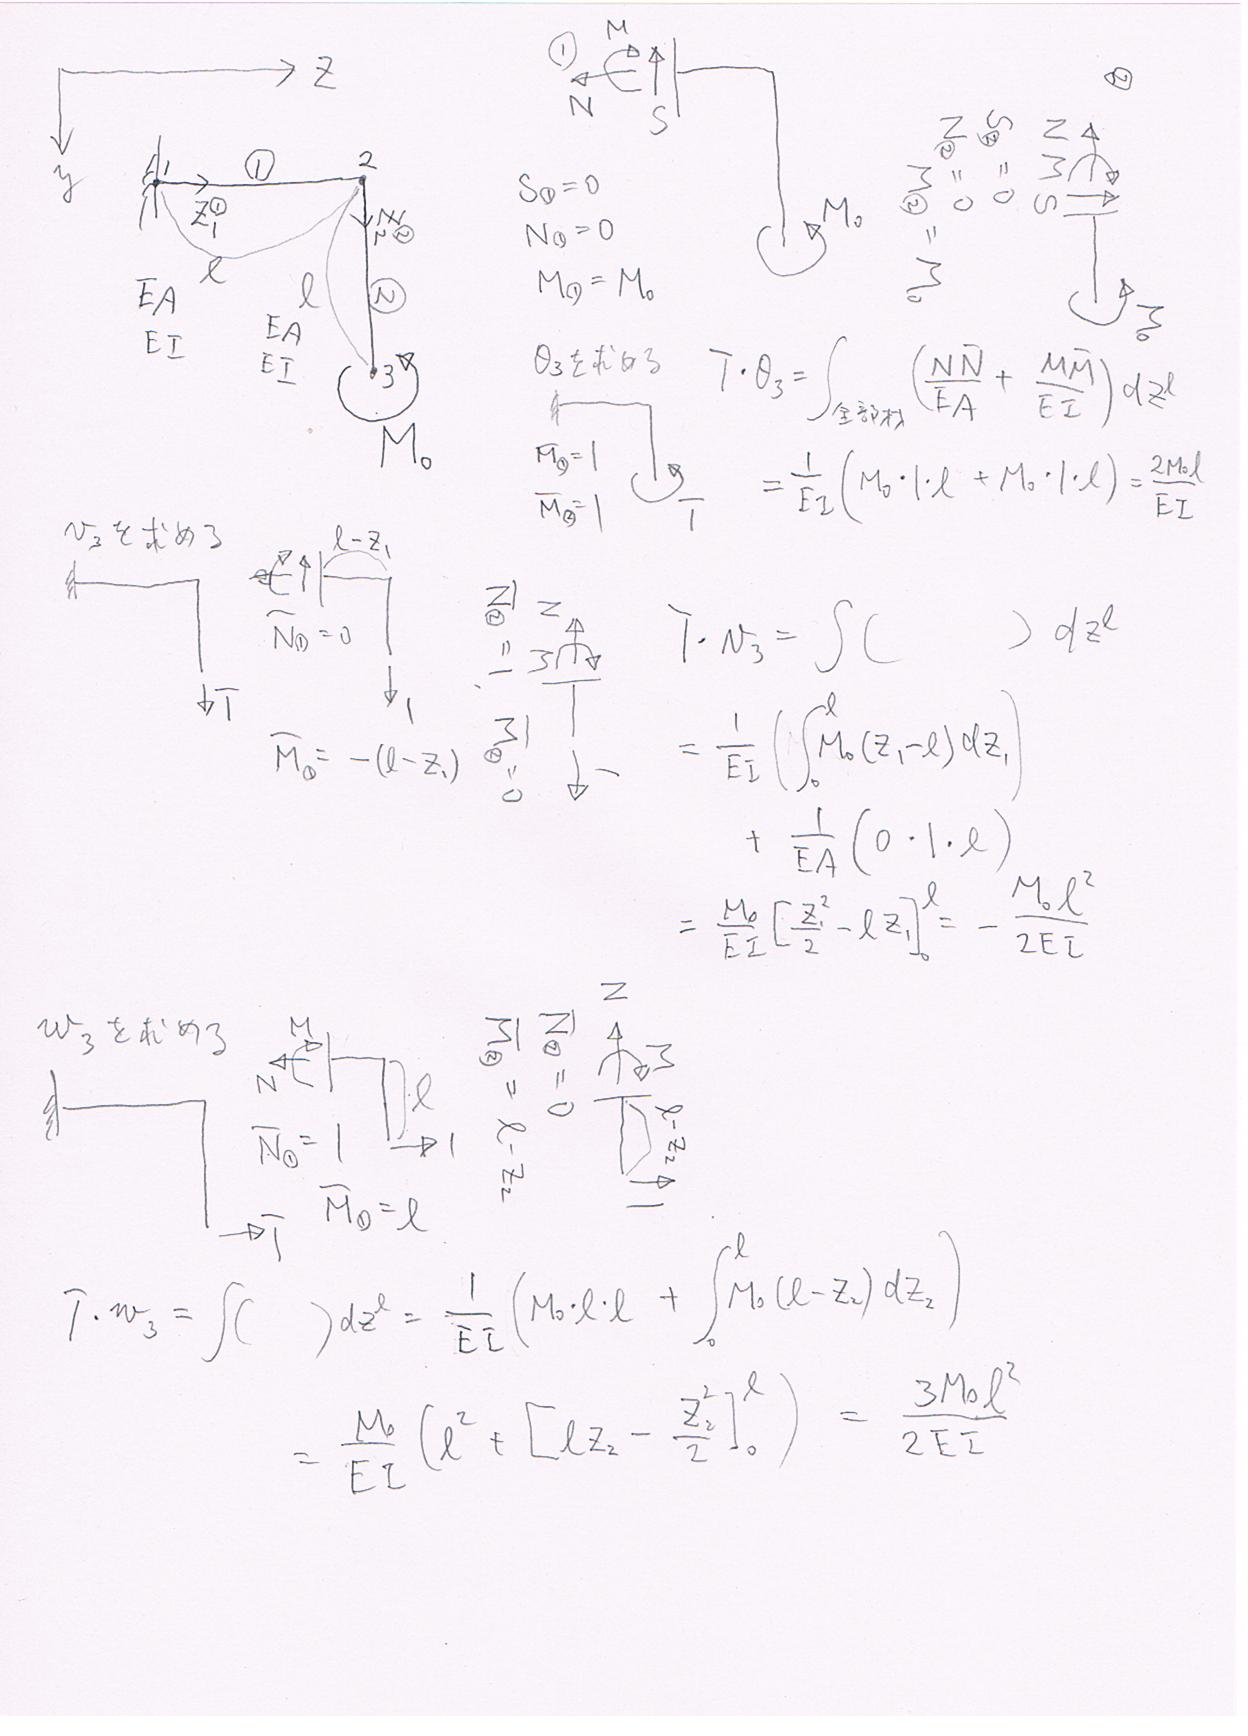 z
y
1 ① 2
z₁①
z₂②
l
l
EA
EI
②
EA
EI
3
M₀
①
M
N
S
M₀
S①=0
N①=0
M①=M₀
②
N M S
S②=0
N②=0
M②=M₀
M₀
θ₃を求める
M̄①=1
M̄②=1
1̄
1̄・θ₃=∫全部材(NN̄/EA + MM̄/EI)dzˡ
=1/EI(M₀・1・l + M₀・1・l)=2M₀l/EI
v₃を求める
1̄
l-z₁
N̄①=0
1
M̄①=-(l-z₁)
N̄②=1
M̄②=0
N
M
1
1̄・v₃=∫( )dzˡ
=1/EI(∫₀ˡM₀(z₁-l)dz₁)
+1/EA(0・1・l)
=M₀/EI[z₁²/2-lz₁]₀ˡ=-M₀l²/2EI
w₃を求める
1̄
M
N
l
1
N̄①=1
M̄①=l
M̄②=l-z₂
N̄②=0
N
M
l-z₂
1
1̄・w₃=∫( )dzˡ=1/EI(M₀・l・l+∫₀ˡM₀(l-z₂)dz₂)
=M₀/EI(l²+[lz₂-z₂²/2]₀ˡ)=3M₀l²/2EI